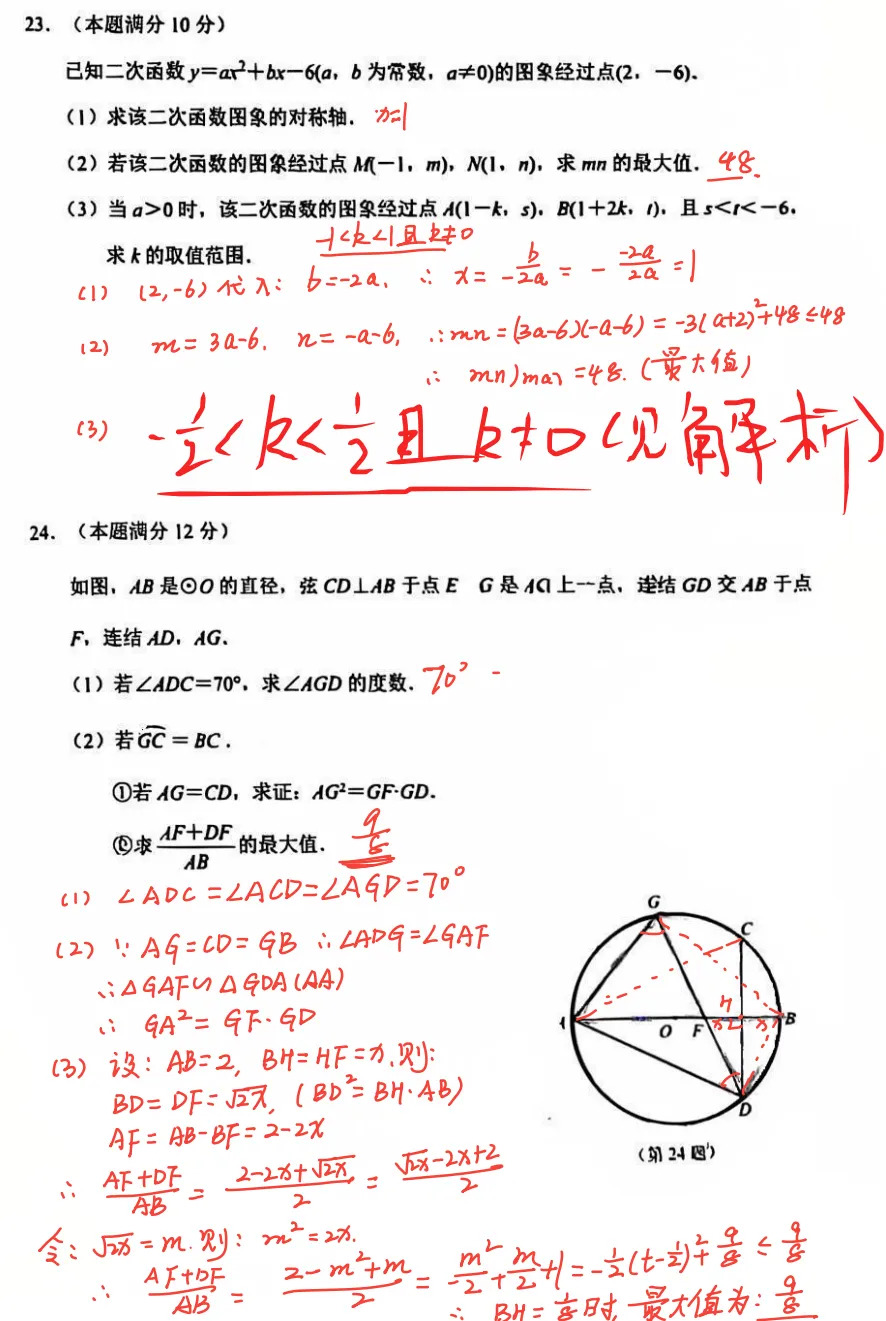 23. （本题满分 10 分）
已知二次函数 y=ax²+bx−6(a，b 为常数，a≠0)的图象经过点(2，−6)．
（1）求该二次函数图象的对称轴． x=1
（2）若该二次函数的图象经过点 M(−1，m)，N(1，n)，求 mn 的最大值． 48.
（3）当 a>0 时，该二次函数的图象经过点 A(1−k，s)，B(1+2k，t)，且 s<t<−6，
求 k 的取值范围． -1<k<1且k≠0
(1) (2,-6)代入: b=-2a, ∴ x= -b/2a = - -2a/2a =1
(2) m=3a-6, n=-a-6, ∴mn=(3a-6)(-a-6)=-3(a+2)²+48≤48
∴ mn)max=48. (最大值)
(3) -1/2<k<1/2且 k≠0 (见解析)
24. （本题满分 12 分）
如图，AB 是⊙O 的直径，弦 CD⊥AB 于点 E G 是 AC 上一点，连结 GD 交 AB 于点
F，连结 AD，AG．
（1）若∠ADC=70°，求∠AGD 的度数． 70° -
（2）若 GC = BC．
①若 AG=CD，求证：AG²=GF·GD．
②求 AF+DF/AB 的最大值． 9/8
(1) ∠ADC=∠ACD=∠AGD=70°
(2) ∵ AG=CD=GB ∴∠ADG=∠GAF
∴△GAF∽△GDA(AA)
∴ GA²=GF·GD
(3) 设: AB=2, BH=HF=x.则:
BD=DF=√2x, (BD²=BH·AB)
AF=AB-BF=2-2x
∴ AF+DF/AB = 2-2x+√2x/2 = √2x-2x+2/2
令: √2x=m.则: m²=2x.
∴ AF+DF/AB = 2-m²+m/2 = m²/-2+m/2+1=-1/2(t-1/2)²+9/8≤9/8
∴ BH=1/8时,最大值为: 9/8
G
C
H
A
O
F
x
x
B
D
（第 24 题）